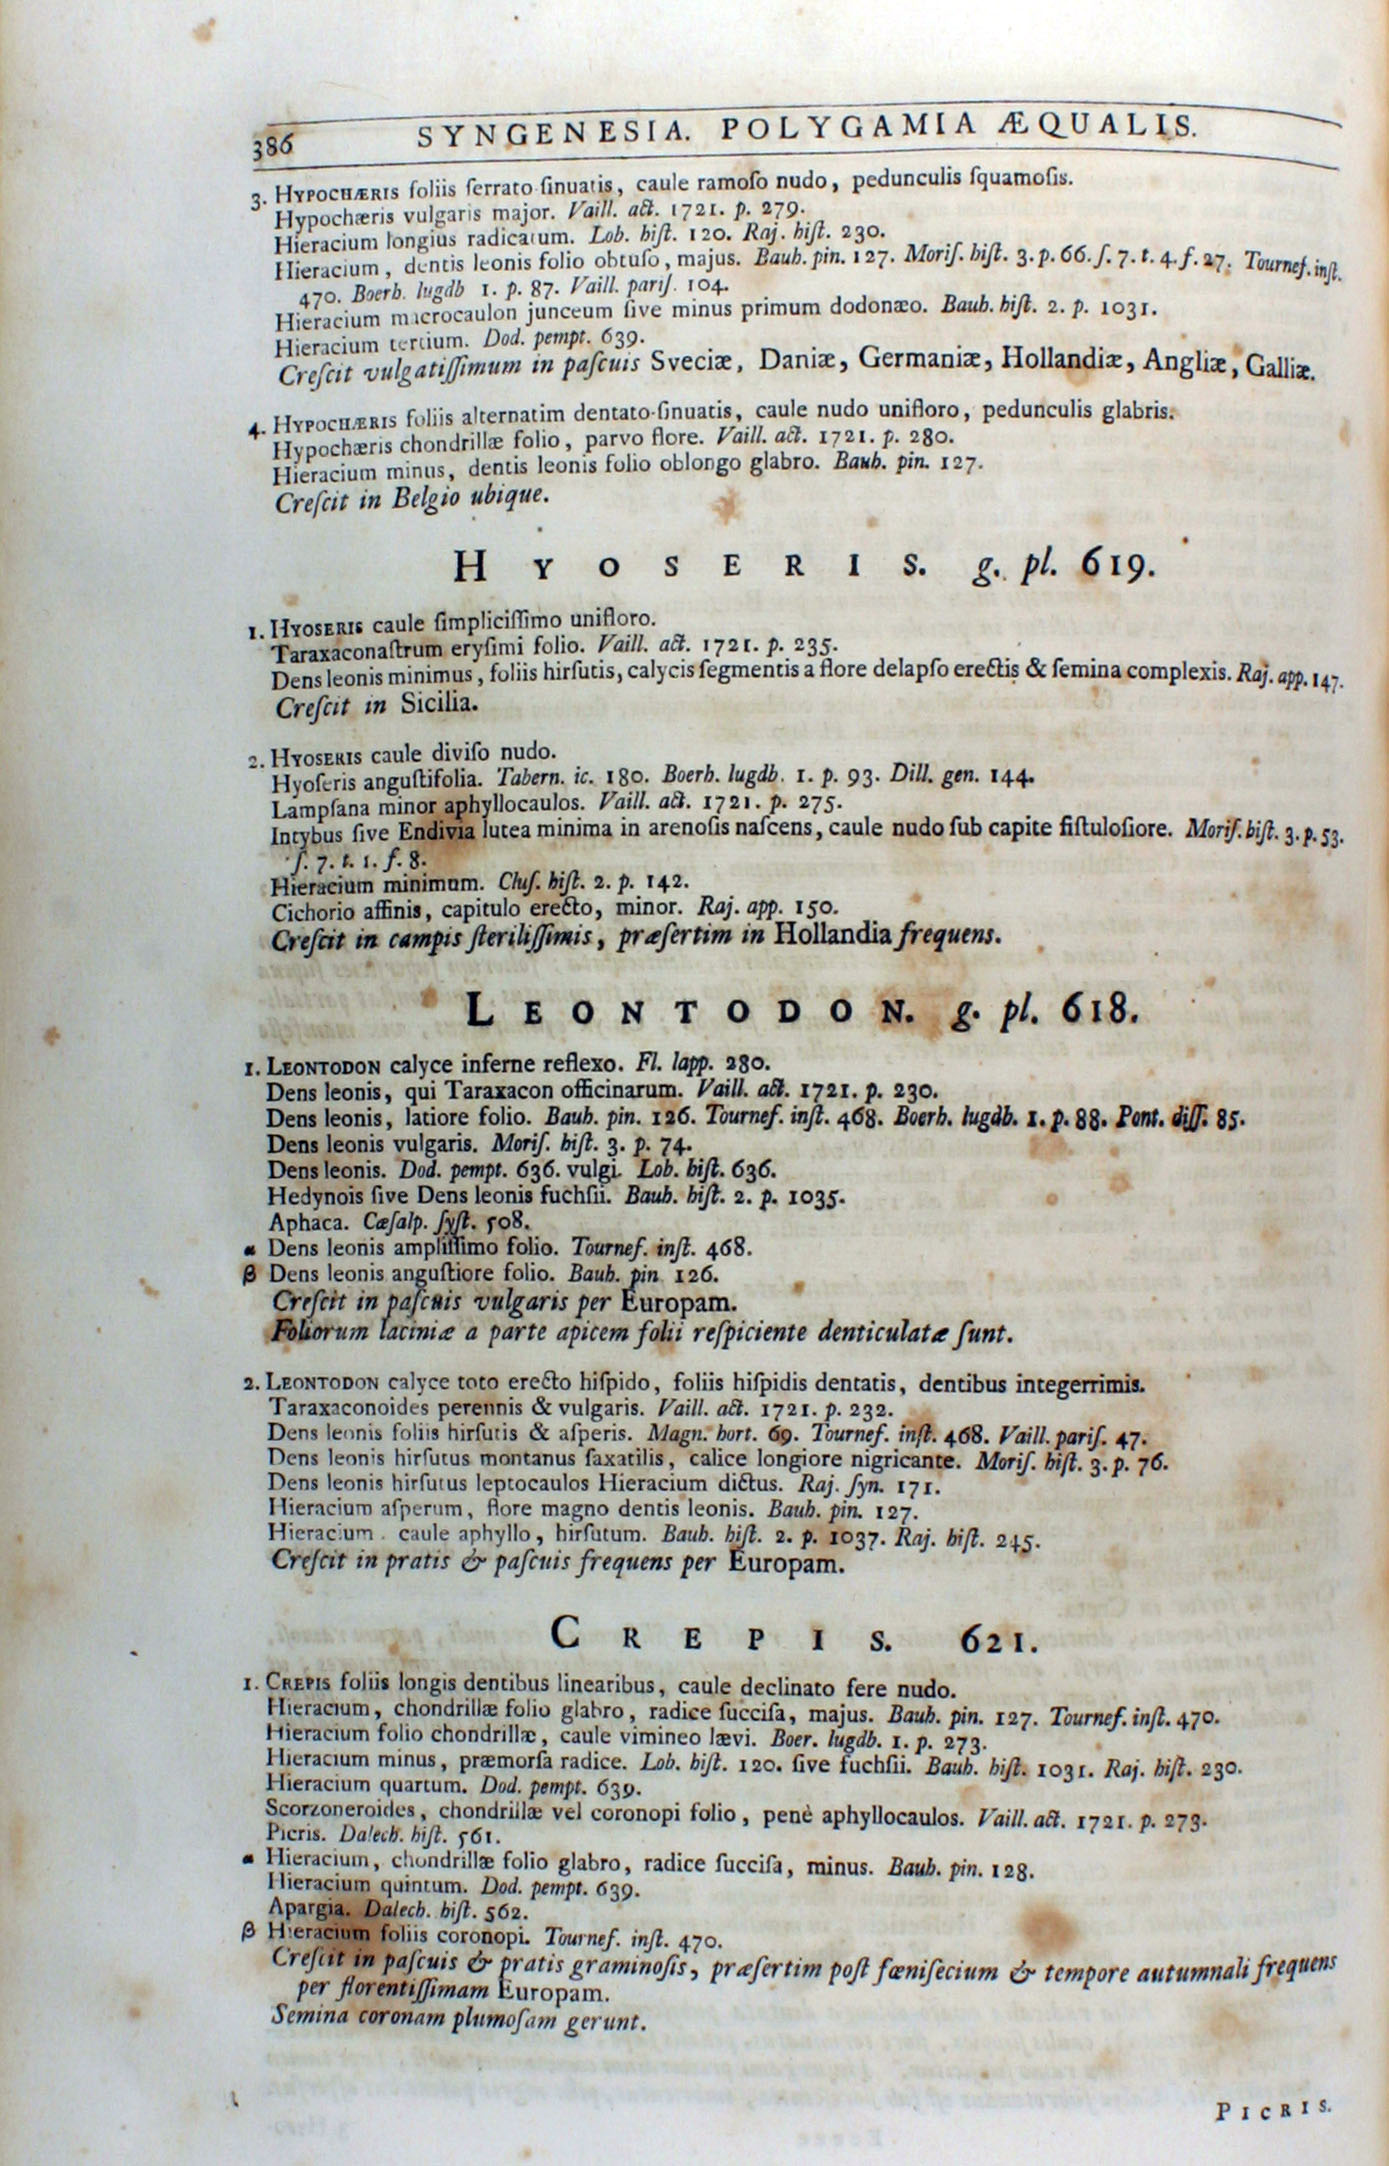 386 SYNGENESIA. POLYGAMIA ÆQUALIS.
3. HYPOCHÆRIS foliis ſerrato ſinuatis, caule ramoſo nudo, pedunculis ſquamoſis.
Hypochæris vulgaris major. Vaill. act. 1721. p. 279.
Hieracium longius radicatum. Lob. hiſt. 120. Raj. hiſt. 230.
Hieracium, dentis leonis folio obtuſo, majus. Bauh. pin. 127. Moriſ. hiſt. 3. p. 66. ſ. 7. t. 4. f. 27. Tournef. inſt.
470. Boerh. lugdb 1. p. 87. Vaill. pariſ. 104.
Hieracium macrocaulon junceum ſive minus primum dodonæo. Bauh. hiſt. 2. p. 1031.
Hieracium tertium. Dod. pempt. 639.
Creſcit vulgatiſſimum in paſcuis Sveciæ, Daniæ, Germaniæ, Hollandiæ, Angliæ, Galliæ.
4. HYPOCHÆRIS foliis alternatim dentato-ſinuatis, caule nudo unifloro, pedunculis glabris.
Hypochæris chondrillæ folio, parvo flore. Vaill. act. 1721. p. 280.
Hieracium minus, dentis leonis folio oblongo glabro. Bauh. pin. 127.
Creſcit in Belgio ubique.
HYOSERIS. g. pl. 619.
1. HYOSERIS caule ſimpliciſſimo unifloro.
Taraxaconaſtrum eryſimi folio. Vaill. act. 1721. p. 235.
Dens leonis minimus, foliis hirſutis, calycis ſegmentis a flore delapſo erectis & ſemina complexis. Raj. app. 147.
Creſcit in Sicilia.
2. HYOSERIS caule diviſo nudo.
Hyoſeris anguſtifolia. Tabern. ic. 180. Boerh. lugdb. 1. p. 93. Dill. gen. 144.
Lampſana minor aphyllocaulos. Vaill. act. 1721. p. 275.
Intybus ſive Endivia lutea minima in arenoſis naſcens, caule nudo ſub capite fiſtuloſiore. Moriſ. hiſt. 3. p. 53.
ſ. 7. t. 1. f. 8.
Hieracium minimum. Cluſ. hiſt. 2. p. 142.
Cichorio affinis, capitulo erecto, minor. Raj. app. 150.
Creſcit in campis ſteriliſſimis, præſertim in Hollandia frequens.
LEONTODON. g. pl. 618.
1. LEONTODON calyce inferne reflexo. Fl. lapp. 280.
Dens leonis, qui Taraxacon officinarum. Vaill. act. 1721. p. 230.
Dens leonis, latiore folio. Bauh. pin. 126. Tournef. inſt. 468. Boerh. lugdb. 1. p. 88. Pont. diſſ. 85.
Dens leonis vulgaris. Moriſ. hiſt. 3. p. 74.
Dens leonis. Dod. pempt. 636. vulgi. Lob. hiſt. 636.
Hedynois ſive Dens leonis fuchſii. Bauh. hiſt. 2. p. 1035.
Aphaca. Cæſalp. ſyſt. 508.
α Dens leonis ampliſſimo folio. Tournef. inſt. 468.
β Dens leonis anguſtiore folio. Bauh. pin 126.
Creſcit in paſcuis vulgaris per Europam.
Foliorum laciniæ a parte apicem folii reſpiciente denticulatæ ſunt.
2. LEONTODON calyce toto erecto hiſpido, foliis hiſpidis dentatis, dentibus integerrimis.
Taraxaconoides perennis & vulgaris. Vaill. act. 1721. p. 232.
Dens leonis foliis hirſutis & aſperis. Magn. hort. 69. Tournef. inſt. 468. Vaill. pariſ. 47.
Dens leonis hirſutus montanus ſaxatilis, calice longiore nigricante. Moriſ. hiſt. 3. p. 76.
Dens leonis hirſutus leptocaulos Hieracium dictus. Raj. ſyn. 171.
Hieracium aſperum, flore magno dentis leonis. Bauh. pin. 127.
Hieracium caule aphyllo, hirſutum. Bauh. hiſt. 2. p. 1037. Raj. hiſt. 245.
Creſcit in pratis & paſcuis frequens per Europam.
CREPIS. 621.
1. CREPIS foliis longis dentibus linearibus, caule declinato fere nudo.
Hieracium, chondrillæ folio glabro, radice ſucciſa, majus. Bauh. pin. 127. Tournef. inſt. 470.
Hieracium folio chondrillæ, caule vimineo lævi. Boer. lugdb. 1. p. 273.
Hieracium minus, præmorſa radice. Lob. hiſt. 120. ſive fuchſii. Bauh. hiſt. 1031. Raj. hiſt. 230.
Hieracium quartum. Dod. pempt. 639.
Scorzoneroides, chondrillæ vel coronopi folio, penè aphyllocaulos. Vaill. act. 1721. p. 273.
Picris. Dalech. hiſt. 561.
α Hieracium, chondrillæ folio glabro, radice ſucciſa, minus. Bauh. pin. 128.
Hieracium quintum. Dod. pempt. 639.
Apargia. Dalech. hiſt. 562.
β Hieracium foliis coronopi. Tournef. inſt. 470.
Creſcit in paſcuis & pratis graminoſis, præſertim poſt fœniſecium & tempore autumnali frequens
per florentiſſimam Europam.
Semina coronam plumoſam gerunt.
PICRIS.